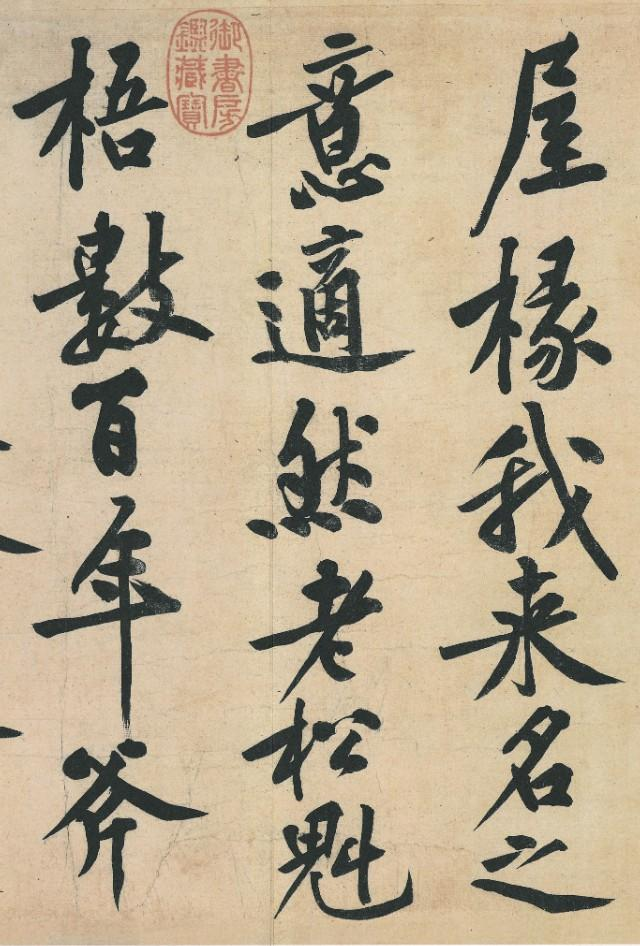 屋椽我来名之
意適然老松魁
梧數百年斧
御書房
鑑藏寶